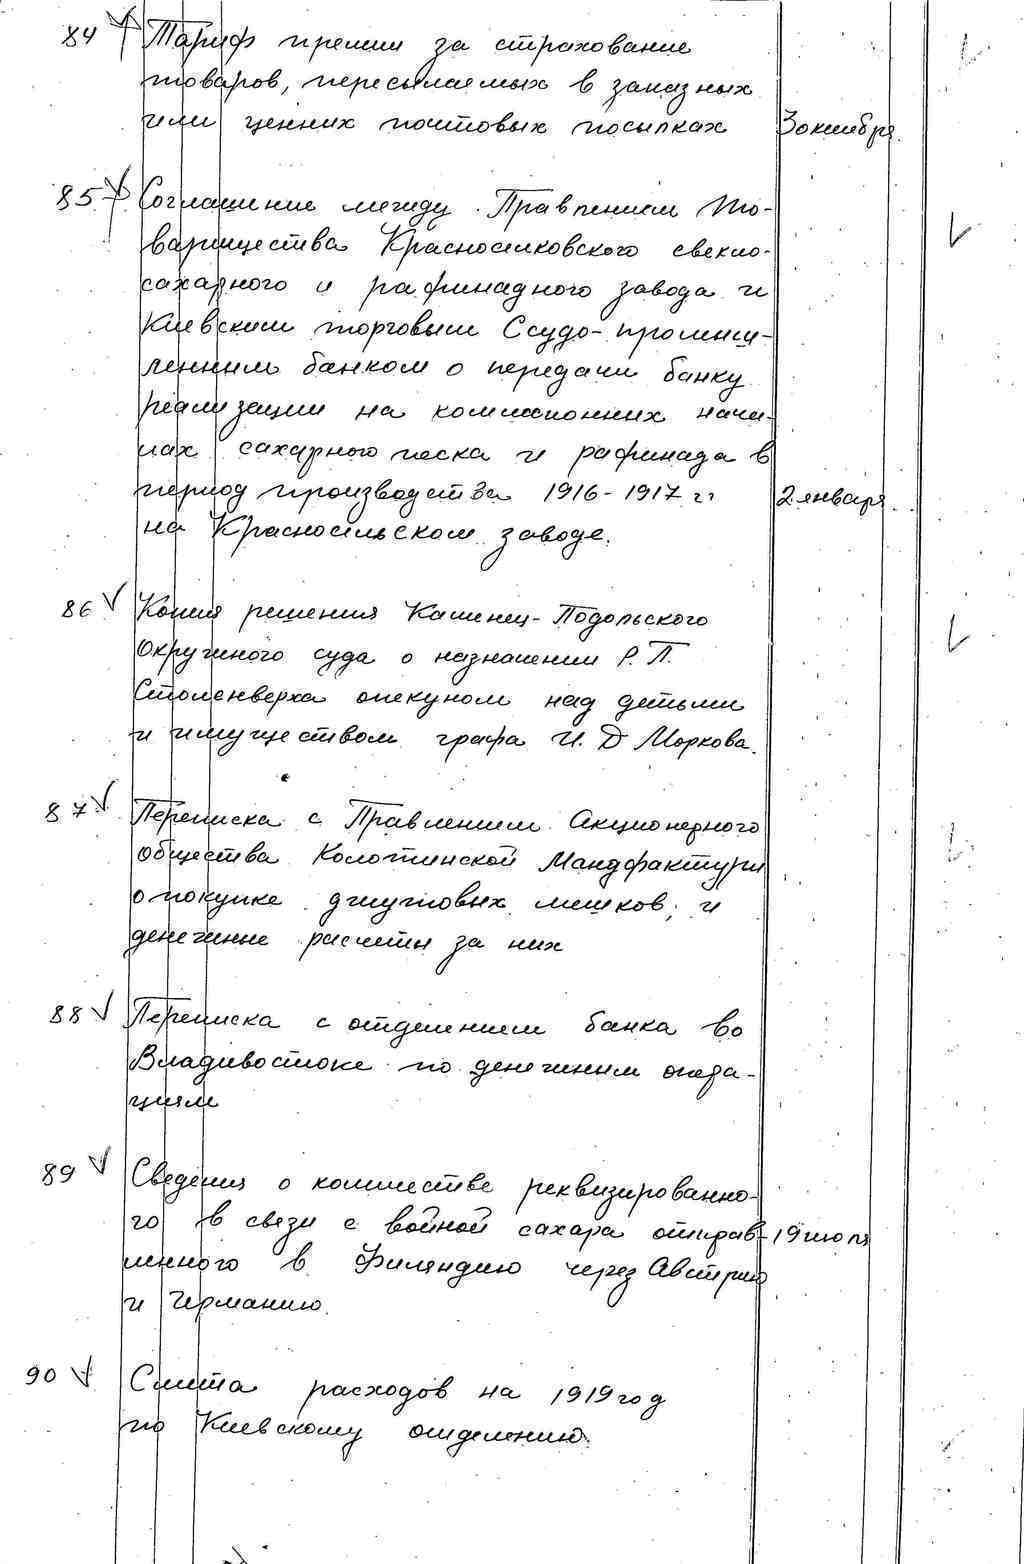 84 Тариф премии за страхование
товаров, пересылаемых в заказных
или ценних почтовых посылках 30 ноября
85 Соглашение между Правлением То-
варищества Красноселковского свекло-
сахарного и рафинадного завода и
Киевским торговым Ссудо-промыш-
ленным банком о передачи банку
реализации на комиссионних нача-
лах сахарного песка и рафинада в
период производства 1916-1917 гг 2 января
на Красносельском заводе.
86 Копия решения Каменец-Подольского
Окружного суда о назначении Р. П.
Столенверха опекуном над детьми
и имуществом графа И. Д Моркова.
87 Переписка с Правлением Акционерного
общества Колотинской Мануфактуры
о покупке джутовых мешков, и
денежные расчеты за них
88 Переписка с отделением банка во
Владивостоке по денежним опера-
циям
89 Сведения о количестве реквизированно-
го в связи с войной сахара отправ- 19 июля
ленного в Финляндию через Австрию
и Германию.
90 Смета расходов на 1919 год
по Киевскому отделению.